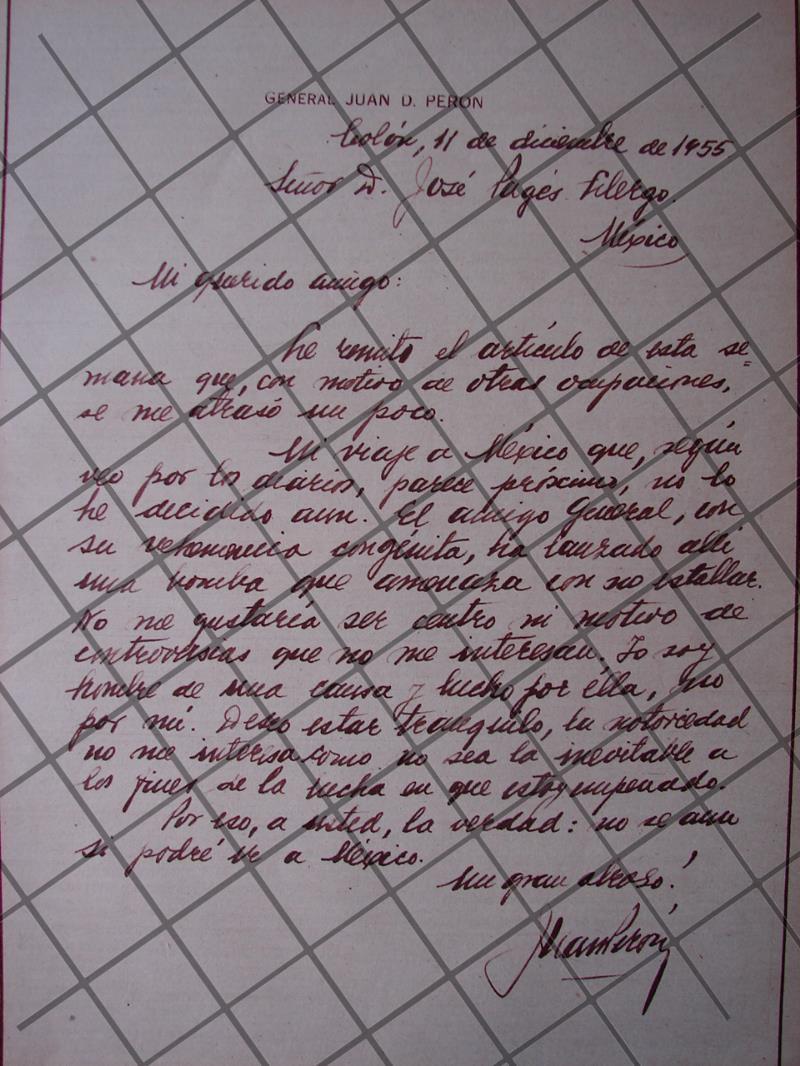 GENERAL JUAN D. PERON
Colón, 11 de diciembre de 1955
Señor D. José Pagés Llergo.
México
Mi querido amigo:
Le remito el artículo de esta se=
mana que, con motivo de otras ocupaciones,
se me atrasó un poco.
Mi viaje a México que, según
veo por los diarios, parece próximo, no lo
he decidido aun. El amigo General, con
su vehemencia congénita, ha lanzado allí
una bomba que amenaza con no estallar.
No me gustaría ser centro ni motivo de
controversias que no me interesan. Yo soy
hombre de una causa y lucho por ella, no
por mí. Deseo estar tranquilo, la notoriedad
no me interesa como no sea la inevitable a
los fines de la lucha en que estoy empeñado.
Por eso, a usted, la verdad: no se aun
si podré ir a México.
Un gran abrazo!
Juan Perón